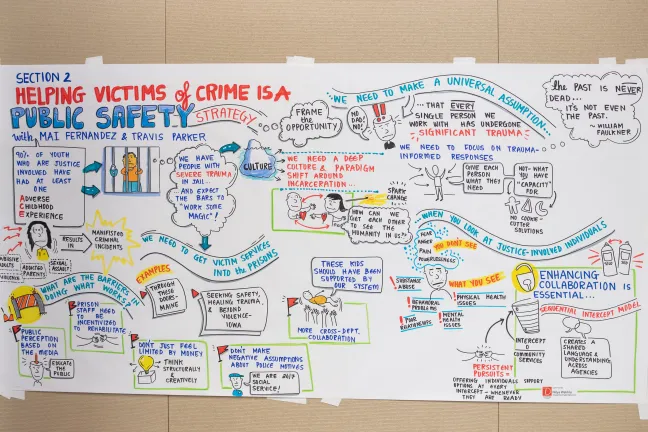 SECTION 2
HELPING VICTIMS of CRIME IS A
PUBLIC SAFETY
STRATEGY
with MAI FERNANDEZ & TRAVIS PARKER
90% OF YOUTH
WHO ARE JUSTICE
INVOLVED HAVE
HAD AT LEAST
ONE
ADVERSE
CHILDHOOD
EXPERIENCE
RESULTS
IN
MANIFESTED
CRIMINAL
INCIDENTS
ADDICTED PARENTS
SEXUAL ASSAULT
VIOLENCE
WE HAVE
PEOPLE WITH
SEVERE TRAUMA
IN JAIL...
AND EXPECT
THE BARS TO
"WORK SOME
MAGIC!"
CULTURE
FRAME
THE
OPPORTUNITY
WE NEED A DEEP
CULTURE & PARADIGM
SHIFT AROUND
INCARCERATION...
SPARK
CHANGE
HOW CAN WE
GET EACH OTHER
TO SEE THE
HUMANITY IN US?
WE NEED TO MAKE A UNIVERSAL ASSUMPTION...
NO
DAD
NO!
... THAT EVERY
SINGLE PERSON WE
WORK WITH HAS UNDERGONE
SIGNIFICANT TRAUMA
WE NEED TO FOCUS ON TRAUMA-
INFORMED RESPONSES
GIVE EACH
PERSON
WHAT THEY
NEED
NOT - WHAT
YOU HAVE
"CAPACITY" FOR
NO COOKIE-
CUTTER
SOLUTIONS
the PAST IS NEVER
DEAD...
IT'S NOT EVEN
THE PAST.
~ WILLIAM
FAULKNER
WE NEED TO GET VICTIM SERVICES
INTO the PRISONS
EXAMPLES
THROUGH
THESE
DOORS-
MAINE
SEEKING SAFETY,
HEALING TRAUMA,
BEYOND
VIOLENCE-
IOWA
WHAT ARE THE BARRIERS IN
DOING WHAT WORKS?
PUBLIC
PERCEPTION
BASED ON
the MEDIA
EDUCATE
THE
PUBLIC
PRISON
STAFF NEED
TO BE
INCENTIVIZED TO
REHABILITATE
DON'T JUST FEEL
LIMITED BY MONEY
THINK
STRUCTURALLY
&
CREATIVELY
DON'T MAKE
NEGATIVE ASSUMPTIONS
ABOUT POLICE MOTIVES
WE ARE 24/7
SOCIAL
SERVICE!
THESE KIDS
SHOULD HAVE BEEN
SUPPORTED BY
OUR SYSTEM
MORE CROSS-DEPT.
COLLABORATION
WHEN YOU LOOK AT JUSTICE-INVOLVED INDIVIDUALS
FEAR
ANGER
PAIN
POWERLESSNESS
YOU DON'T SEE
WHAT YOU SEE
SUBSTANCE
ABUSE
BEHAVIORAL
PROBLEMS
PHYSICAL HEALTH
ISSUES
POOR
RELATIONSHIPS
MENTAL
HEALTH
ISSUES
PERSISTENT
PURSUIT:
OFFERING INDIVIDUALS SUPPORT
OPTIONS AT EVERY
INTERCEPT - WHENEVER
THEY ARE READY
ENHANCING
COLLABORATION IS
ESSENTIAL...
SEQUENTIAL INTERCEPT MODEL
INTERCEPT
0
COMMUNITY
SERVICES
CREATES A
SHARED
LANGUAGE &
UNDERSTANDING
ACROSS
AGENCIES